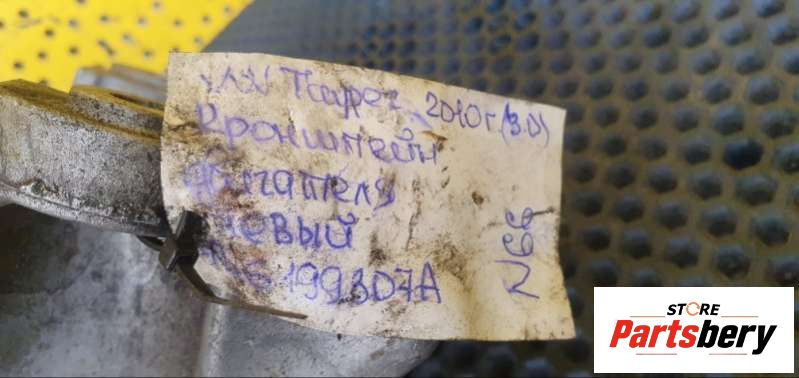 Туарег 2010г. (3.0)
Кронштейн
двигателя
левый
199307A
N66
STORE
Partsbery